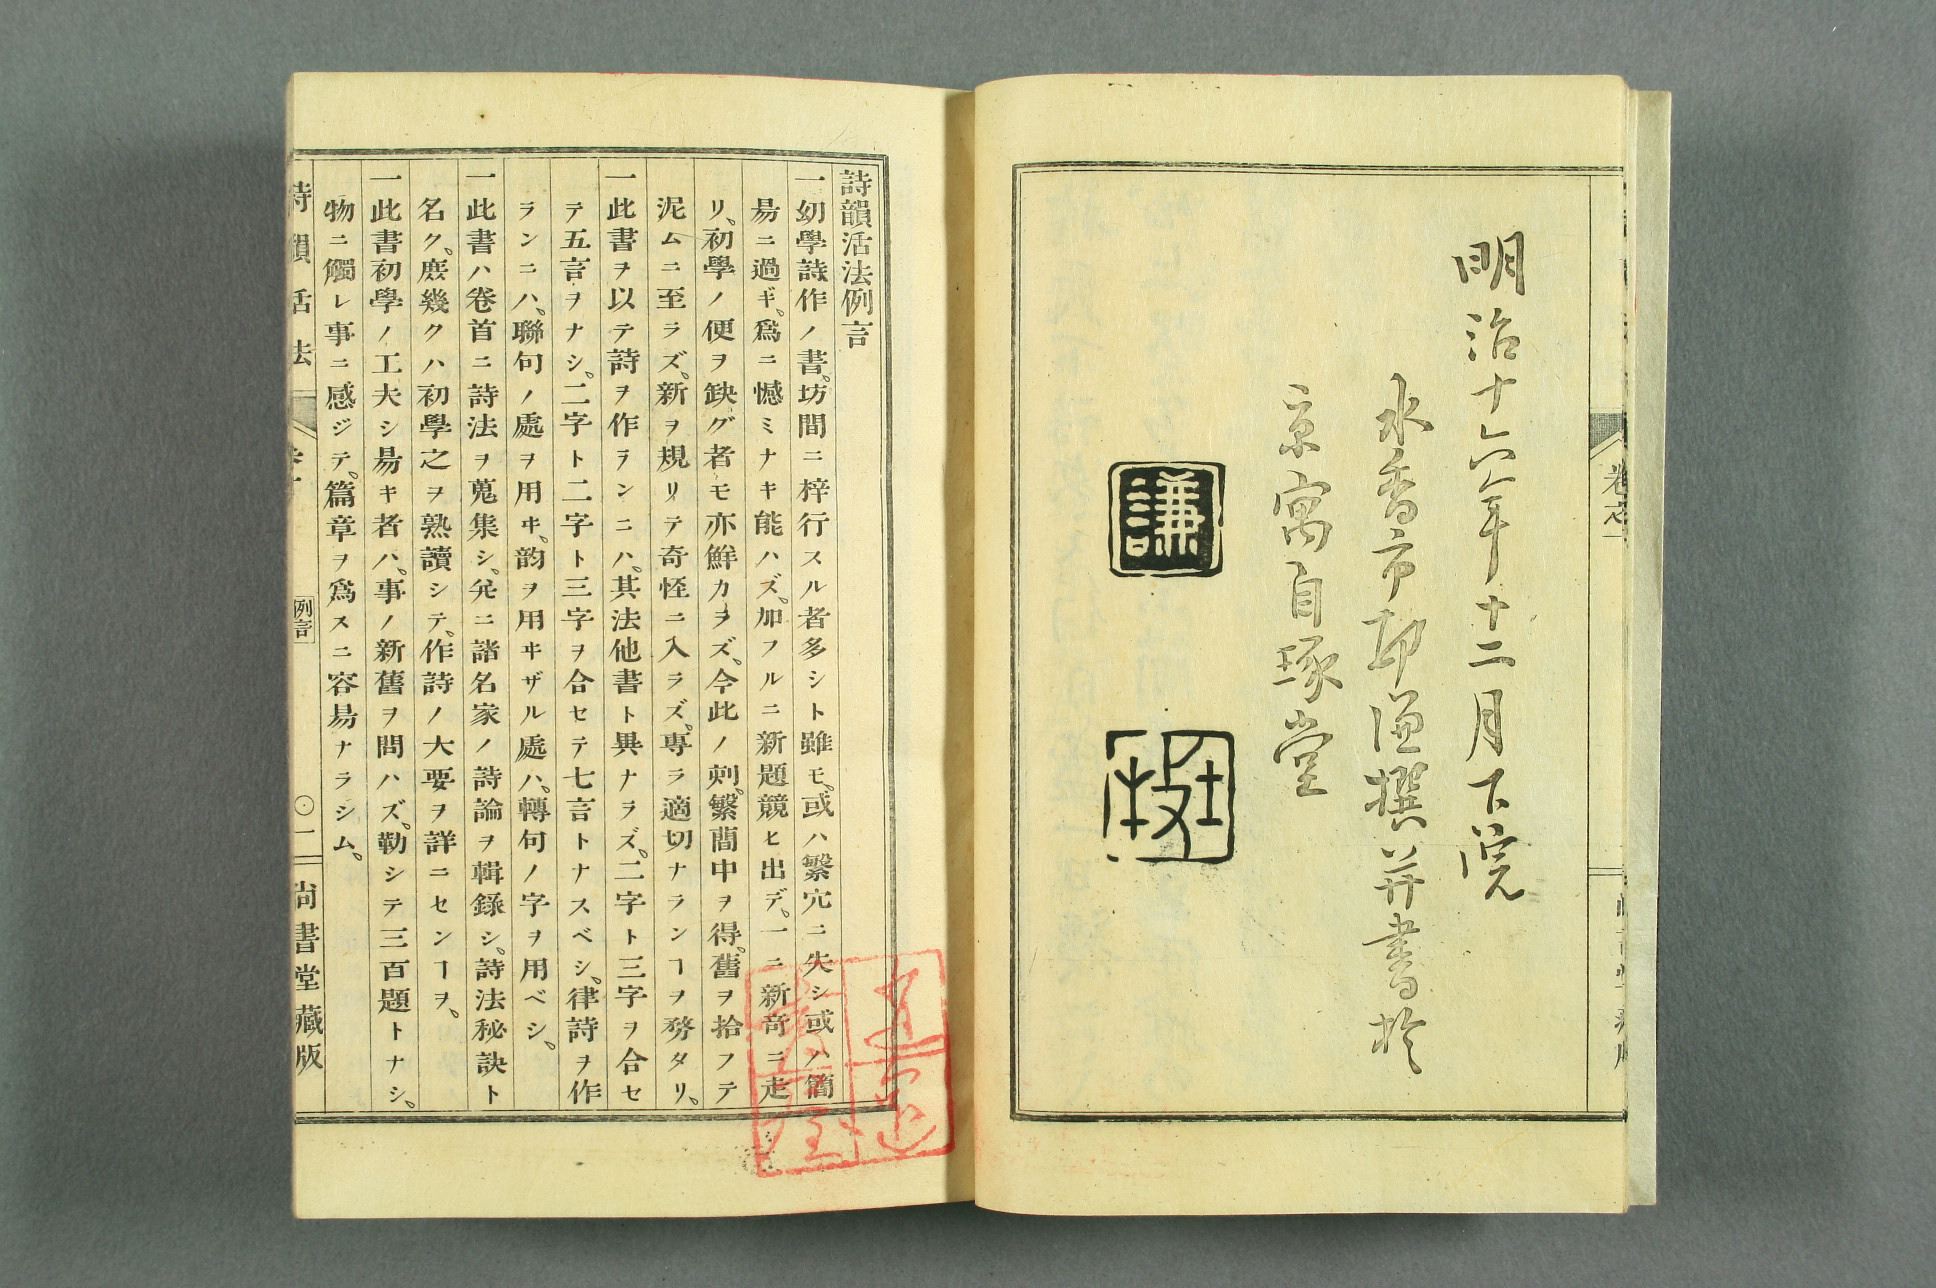 卷之一
明治十六年十二月下浣
水香市邨謙撰并書於
京寓自琢堂
謙
詩韻活法例言
一幼學詩作ノ書。坊間ニ梓行スル者多シト雖モ。或ハ繁冗ニ失シ或ハ簡
易ニ過ギ。爲ニ憾ミナキ能ハズ。加フルニ新題競ヒ出デ。一ニ新奇ニ走
リ。初學ノ便ヲ缺グ者モ亦鮮カヲズ。今此ノ刺。繁蕳中ヲ得。舊ヲ拾フテ
泥ムニ至ラズ。新ヲ規リテ奇怪ニ入ラズ。專ラ適切ナランヿヲ務タリ。
一此書ヲ以テ詩ヲ作ランニハ。其法他書ト異ナラズ。二字ト三字ヲ合セ
テ五言ヲナシ。二字ト二字ト三字ヲ合セテ七言トナスベシ。律詩ヲ作
ランニハ。聯句ノ處ヲ用ヰ。韵ヲ用ヰザル處ハ。轉句ノ字ヲ用ベシ。
一此書ハ卷首ニ詩法ヲ蒐集シ。兊ニ諸名家ノ詩論ヲ輯錄シ。詩法秘訣ト
名ク。庶幾クハ初學之ヲ熟讀シテ。作詩ノ大要ヲ詳ニセンヿヲ。
一此書初學ノ工夫シ易キ者ハ。事ノ新舊ヲ問ハズ。勒シテ三百題トナシ。
物ニ觸レ事ニ感ジテ。篇章ヲ爲スニ容易ナラシム。
詩韻活法
例言
一
尙書堂藏版